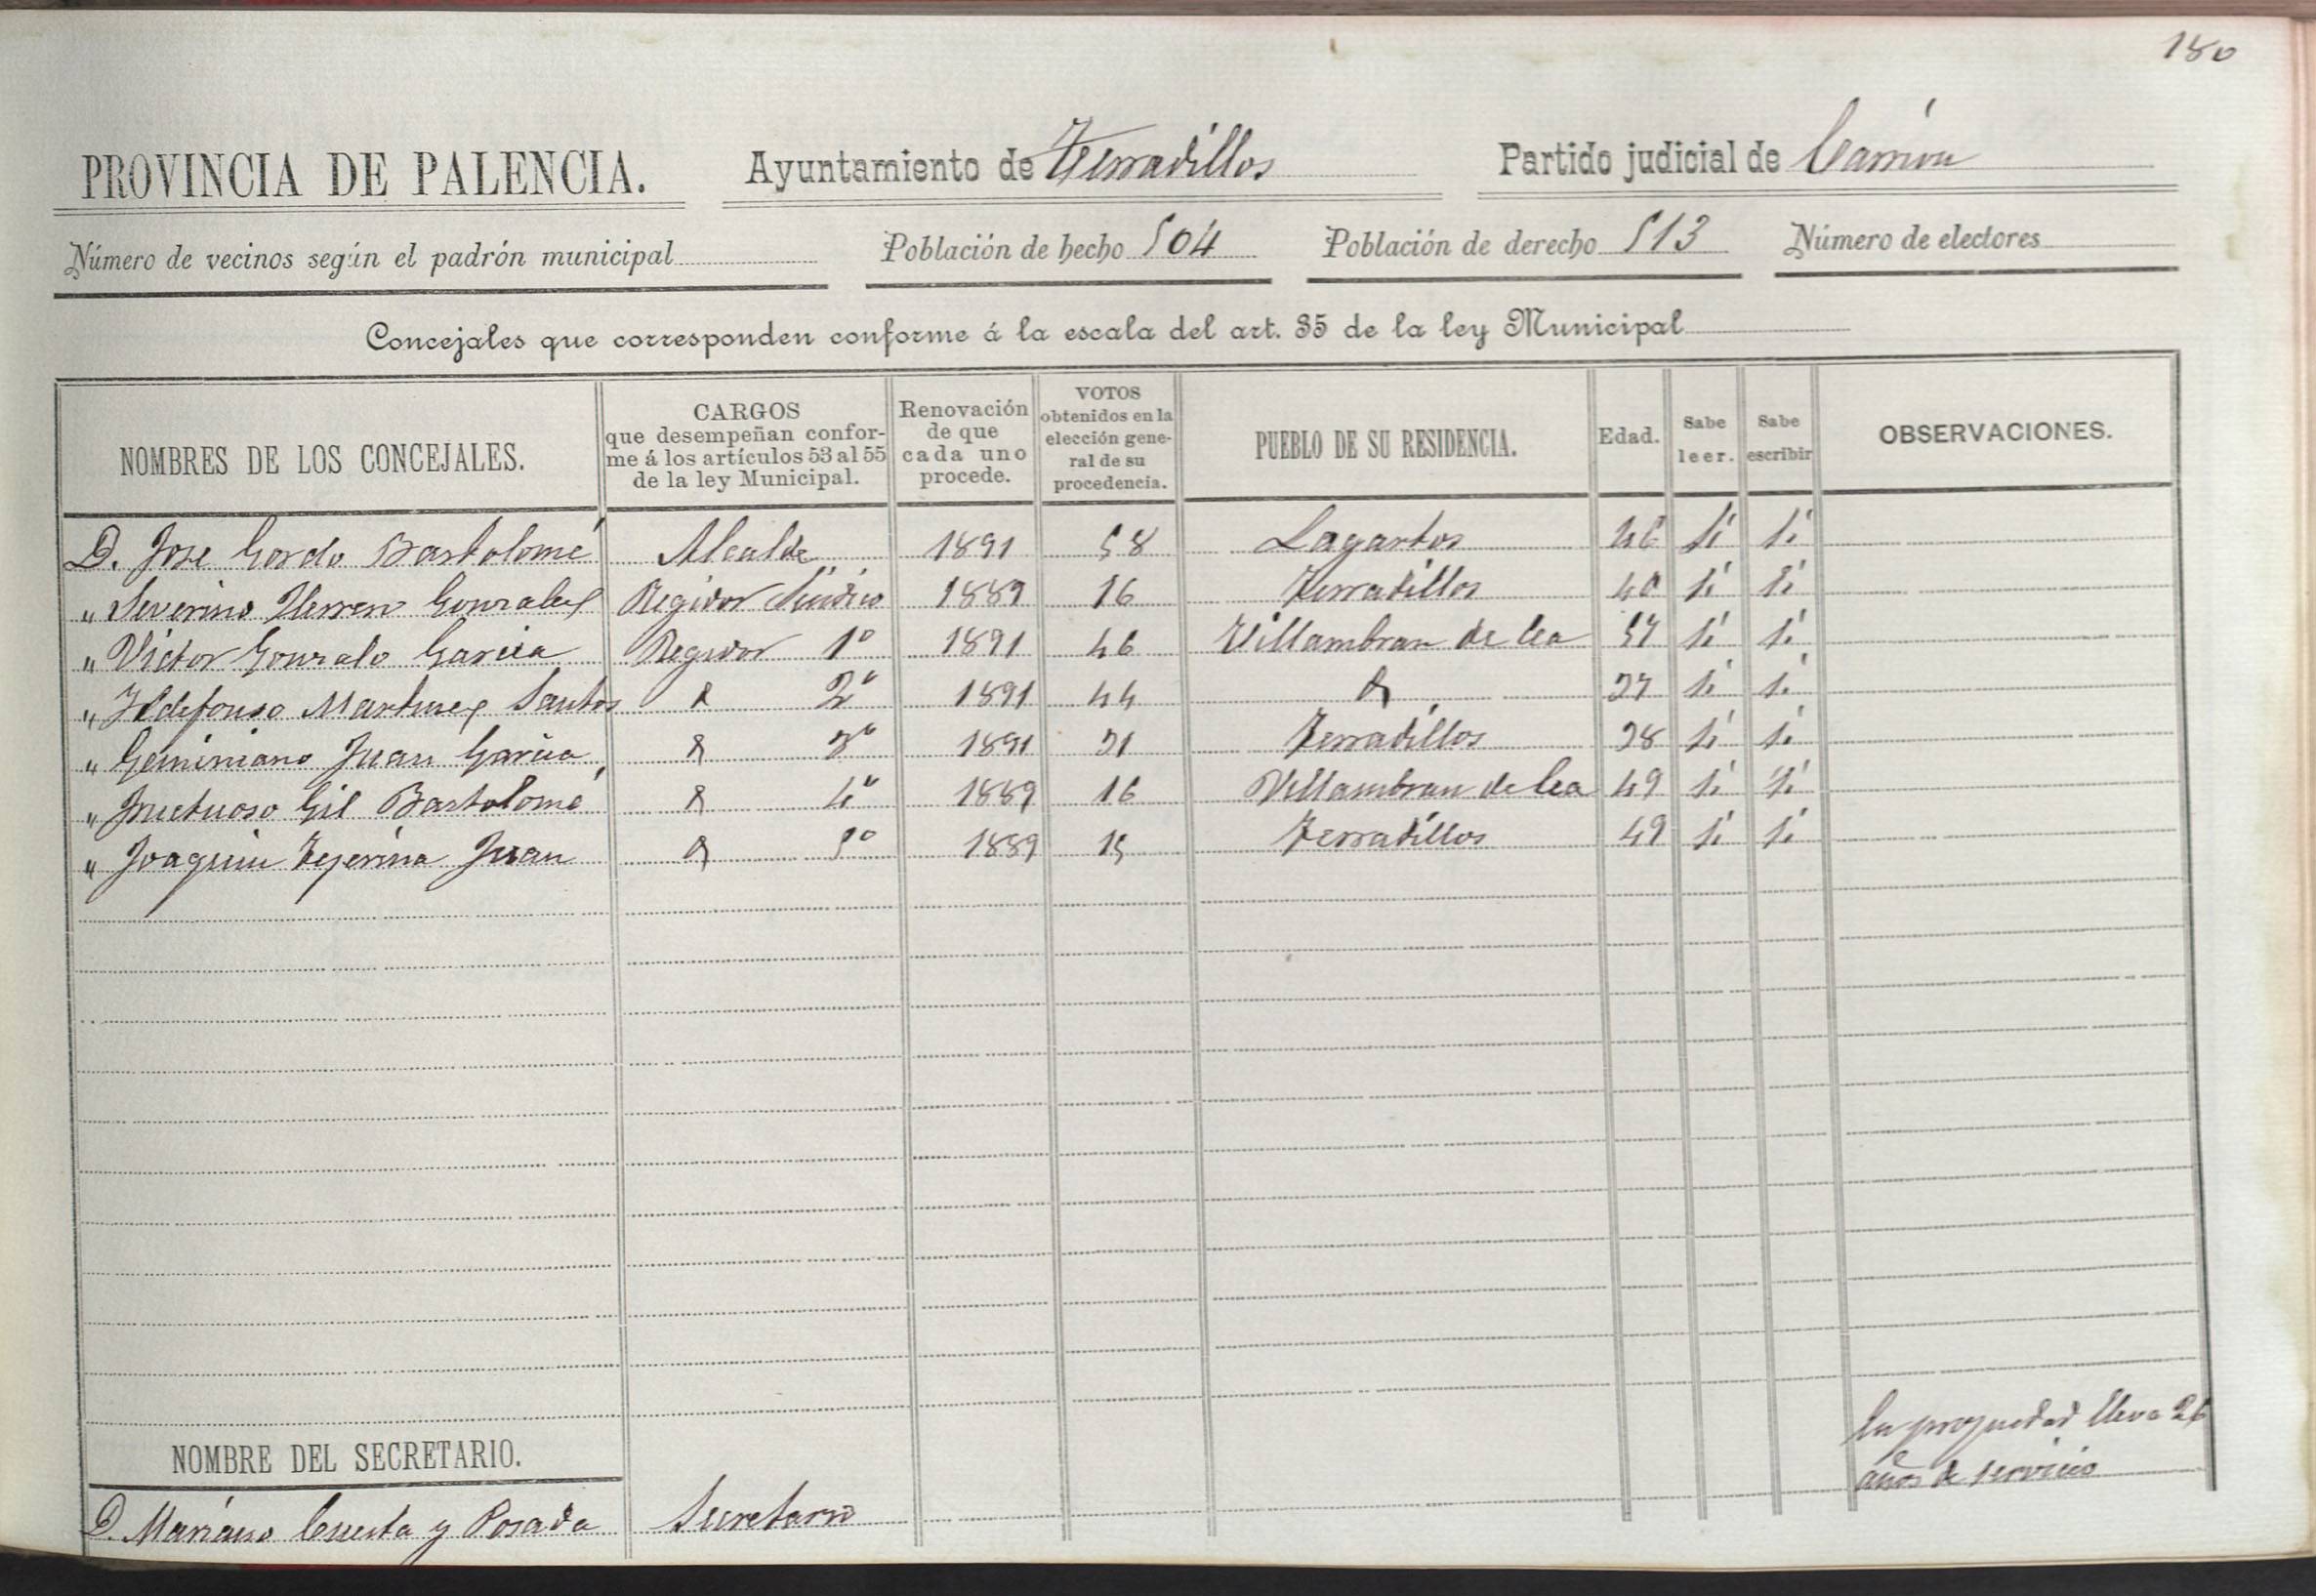 180
PROVINCIA DE PALENCIA. Ayuntamiento de Terradillos Partido judicial de Carrion
Número de vecinos según el padrón municipal Población de hecho 504 Población de derecho 513 Número de electores
Concejales que corresponden conforme á la escala del art. 35 de la ley Municipal
NOMBRES DE LOS CONCEJALES.
CARGOS
que desempeñan confor-
me á los artículos 53 al 55
de la ley Municipal.
Renovación
de que
cada uno
procede.
VOTOS
obtenidos en la
elección gene-
ral de su
procedencia.
PUEBLO DE SU RESIDENCIA.
Edad.
Sabe
leer.
Sabe
escribir
OBSERVACIONES.
D. Jose Gordo Bartolomé Alcalde 1891 58 Lagartos 46 Sí Sí
" Severino Herrero Gonzalez Regidor Síndico 1889 16 Terradillos 40 Sí Sí
" Victor Gonzalo Garcia Regidor 1º 1891 46 Villambran de Cea 57 Sí Sí
" Ildefonso Martinez Santos & 2º 1891 44 & 37 Sí Sí
" Geminiano Juan Garcia & 3º 1891 31 Terradillos 38 Sí Sí
" Fructuoso Gil Bartolomé & 4º 1889 16 Villambran de Cea 49 Sí Sí
" Joaquin Tejerina Juan & 5º 1889 15 Terradillos 49 Sí Sí
NOMBRE DEL SECRETARIO.
En propiedad lleva 26
años de servicio
D. Mariano Cuesta y Posada Secretario